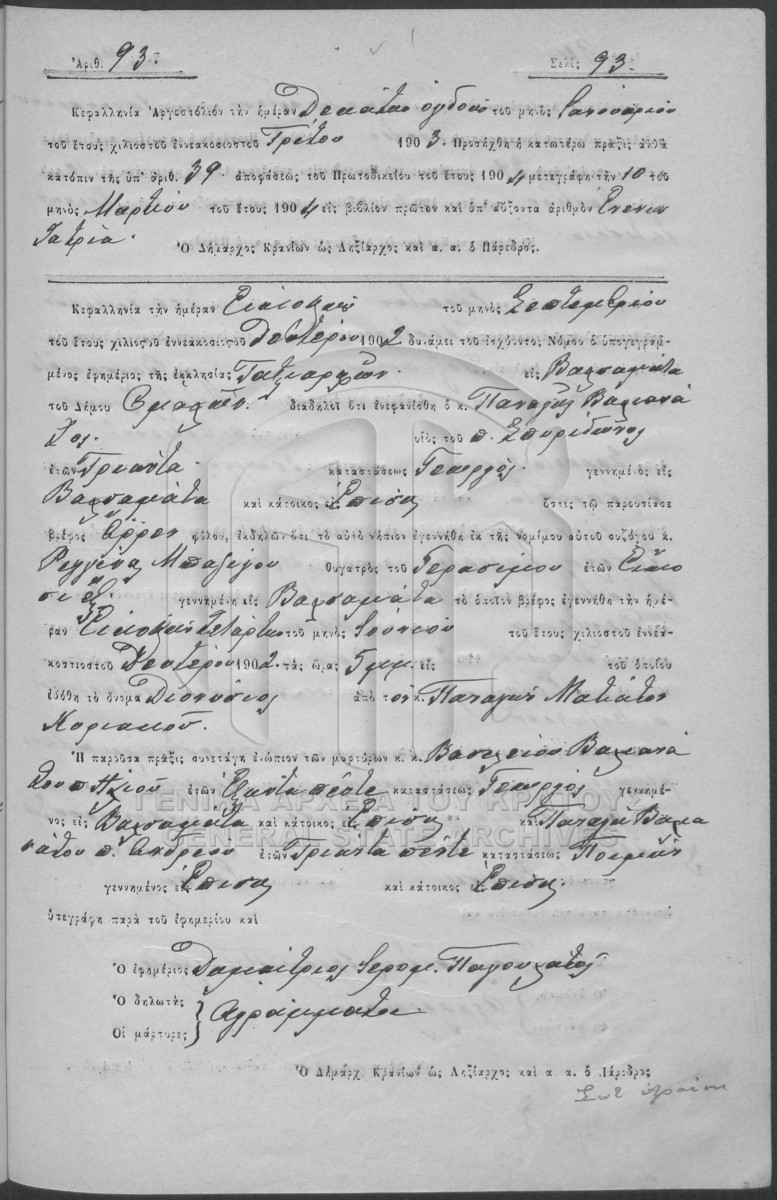 Ἀριθ. 93. Σελὶς 93.
Κεφαλληνία Ἀργοστόλιον τὴν ἡμέραν Δεκάτην ὀγδόην τοῦ μηνὸς Ἰανουαρίου
τοῦ ἔτους χιλιοστοῦ ἐννεακοσιοστοῦ Τρίτου 1903. Προσήχθη ἡ κατωτέρω πρᾶξις ἀλλὰ
κατόπιν τῆς ὑπ' ἀριθ. 39. ἀποφάσεως τοῦ Πρωτοδικείου τοῦ ἔτους 1904 μετεγράφη τὴν 10 τοῦ
μηνὸς Μαρτίου τοῦ ἔτους 1904 εἰς βιβλίον πρῶτον καὶ ὑπ' αὔξοντα ἀριθμὸν Ἐνενήν
τα τρία.
Ὁ Δήμαρχος Κρανίων ὡς Ληξίαρχος καὶ α. α. ὁ Πάρεδρος.
Κεφαλληνία τὴν ἡμέραν Εἰκοστὴν τοῦ μηνὸς Σεπτεμβρίου
τοῦ ἔτους χιλιοστοῦ ἐννεακοσιοστοῦ Δευτέρου 1902 δυνάμει τοῦ ἰσχύοντος Νόμου ὁ ὑπογεγραμ-
μένος ἐφημέριος τῆς ἐκκλησίας Ταξιαρχῶν. εἰς Βαλσαμάτα
τοῦ Δήμου Ὁμαλῶν. διαδηλοῖ ὅτι ἐνεφανίσθη ὁ κ. Παναγῆς Βαλσαμά
τος. υἱὸς τοῦ π. Σπυρίδωνος
ἐτῶν Τριάντα. καταστάσεως Γεωργός. γεννημένος εἰς
Βαλσαμάτα καὶ κάτοικος Ἐπίσης ὅστις τῷ παρουσίασε
βρέφος ἄρρεν φύλου, ἐκδηλῶν ὅτι τὸ αὐτὸ νήπιον ἐγεννήθη ἐκ τῆς νομίμου αὐτοῦ συζύγου κ.
Ρεγγίνας θυγατρὸς τοῦ Γερασίμου ἐτῶν Εἴκο
σι ἕξ. γεννημένη εἰς Βαλσαμάτα τὸ ὁποῖον βρέφος ἐγεννήθη τὴν ἡμέ-
ραν Εἰκοστὴν Τετάρτην τοῦ μηνὸς Ἰουνίου τοῦ ἔτους χιλιοστοῦ ἐννεα-
κοσιοστοῦ Δευτέρου 1902. τὰς ὥρας 5 μ.μ. εἰς τοῦ ὁποίου
ἐδόθη τὸ ὄνομα Διονύσιος ἀπὸ τὸν κ. Παναγῆν Ματιάτον
Κυριακοῦ.
Ἡ παροῦσα πρᾶξις συνετάγη ἐνώπιον τῶν μαρτύρων κ. κ. Βασιλείου Βαλσαμά
του π. Ἠλιοῦ ἐτῶν Τριάντα πέντε καταστάσεως Γεωργός γεννημέ-
νος εἰς Βαλσαμάτα καὶ κάτοικος εἰς Ἐπίσης καὶ Παναγῆ Βαλσα
μάτου π. Ἀνδρέου ἐτῶν Τριάντα πέντε καταστάσεως Ποιμήν
γεννημένος εἰς Ἐπίσης καὶ κάτοικος Ἐπίσης.
ὑπεγράφη παρὰ τοῦ ἐφημερίου καὶ
Ὁ ἐφημέριος Δημήτριος Ἱερομ.
Ὁ δηλωτὴς
Ἀγράμματοι
Οἱ μάρτυρες
Ὁ Δήμαρχ. Κρανίων ὡς Ληξίαρχος καὶ α. α. ὁ Πάρεδρος
ΓΕΝΙΚΑ ΑΡΧΕΙΑ ΤΟΥ ΚΡΑΤΟΥΣ
GENERAL STATE ARCHIVES